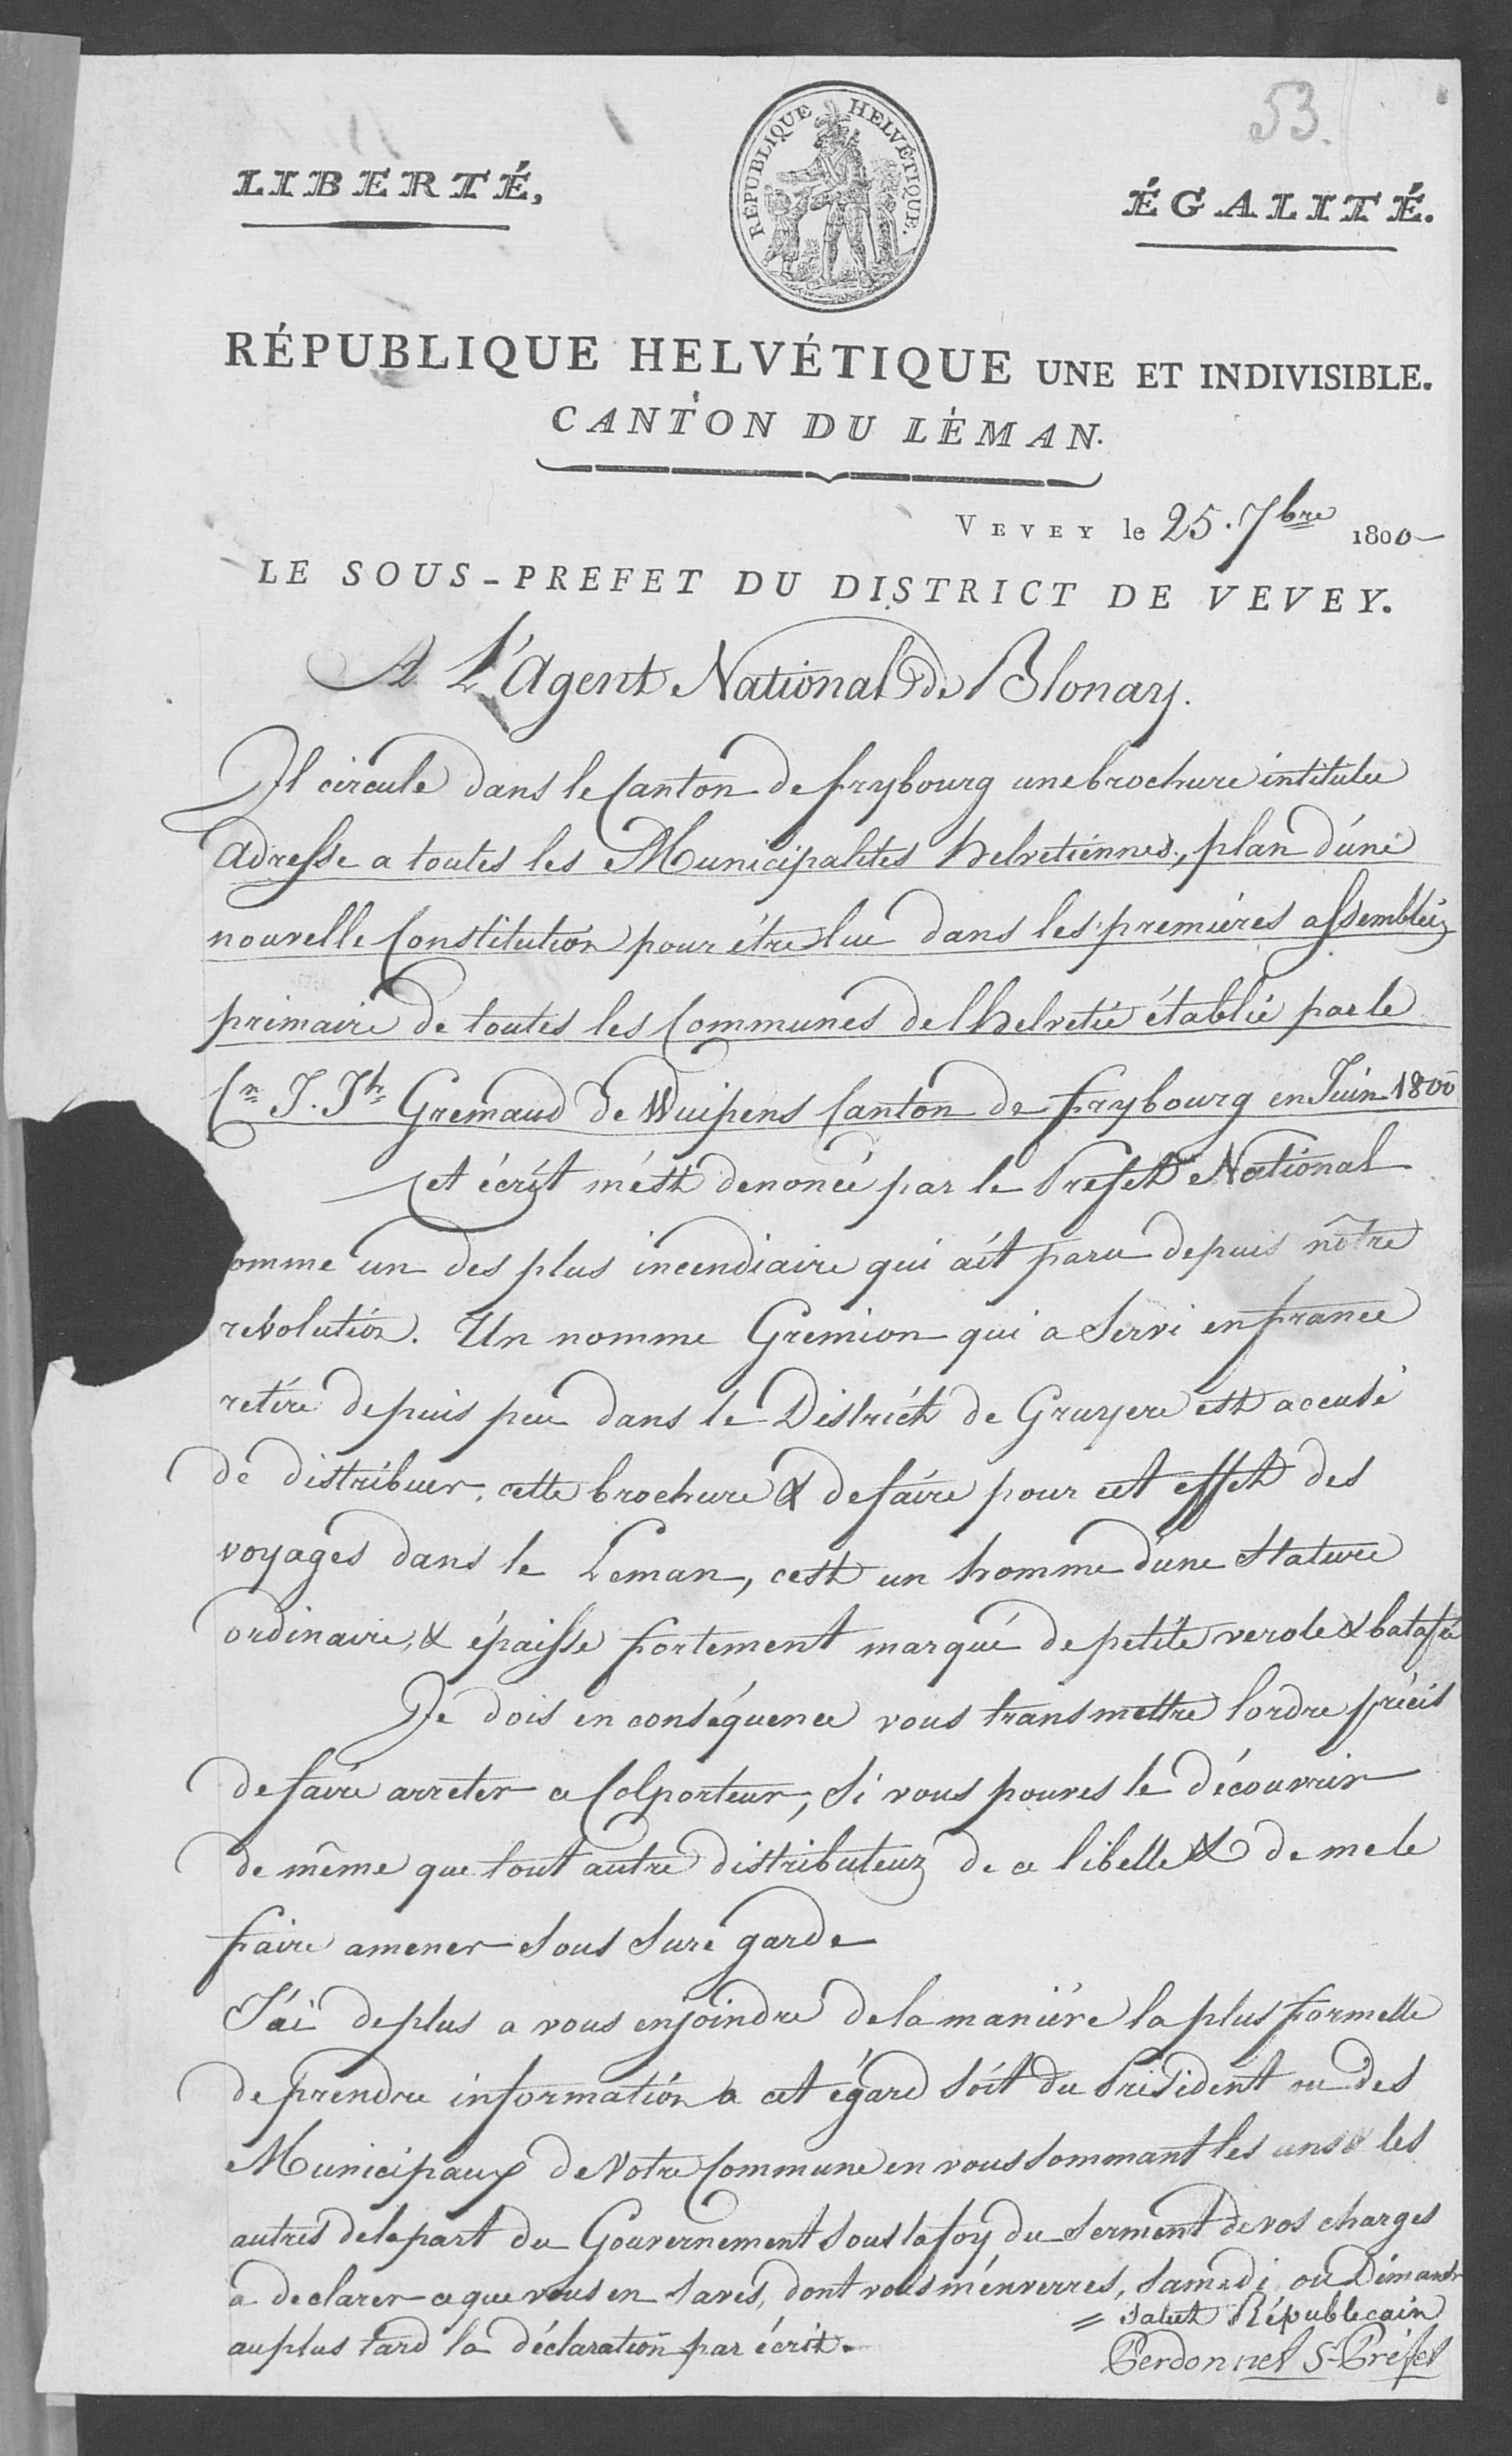 53.
LIBERTÉ,
RÉPUBLIQUE HELVÉTIQUE.
ÉGALITÉ.
RÉPUBLIQUE HELVÉTIQUE UNE ET INDIVISIBLE.
CANTON DU LÉMAN.
VEVEY le 25. 7bre 1800
LE SOUS-PREFET DU DISTRICT DE VEVEY.
A L'Agent National de Blonay.
Il circule dans le Canton de frybourg une brochure intitulee
Adresse a toutes les Municipalites helvetiennes, plan d'une
nouvelle Constitution pour être lue dans les premiéres assembleés
primaire de toutes les Communes de lhelvetie établie par le
Cn J. Jh Gremaud de Wuipens Canton de frybourg en Juin 1800
Cet écrit m'est denoncé par le Prefet National
omme un des plus incendiaire qui ait paru depuis nôtre
revolution. Un nomme Gremion qui a servi en france
retiré depuis peu dans le District de Gruyere est accusé
de distribuer cette brochure & de faire pour cet effet des
voyages dans le Leman, cest un homme d'une stature
ordinaire, & épaisse fortement marqué de petite verole & batafré
Je dois en conséquence vous transmettre lordre précis
de faire arreter ce Colporteur, Si vous pouves le découvrir
de même que tout autre distributeur de ce libelle & de me le
faire amener sous sure garde
J'ai de plus a vous enjoindre de la maniére la plus formelle
de prendre information a cet égard soit du Président ou des
Municipaux de Votre Commune en vous sommant les uns & les
autres de la part du Gouvernement sous la foy du serment de vos charges
a declarer ce que vous en savés, dont vous m'énverres, samedi ou Dimanche
au plus tard la déclaration par écrit.
= Salut Républicain
Perdonnet S-Préfet